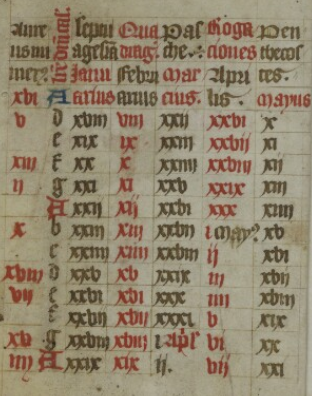 Aure septu Qua Pas Roga Pen
nus nu agesia drag. che. ciones thecos
Janu Febru Mar Apri tes.
xvi A arius arius cius. lis. mayus
v d xviii viii xxii xxvi x
e xix ix xxiii xxvii xi
xiii f xx x xxiiii xxviii xii
ii g xxi xi xxv xxix xiii
A xxii xii xxvi xxx xiiii
x b xxiii xiii xxvii i may9 xv
c xxiiii xiiii xxviii ii xvi
xviii d xxv xv xxix iii xvii
vii e xxvi xvi xxx iiii xviii
f xxvii xvii xxxi v xix
xv g xxviii xviii i apl's vi xx
iiii A xxix xix ii. vii xxi